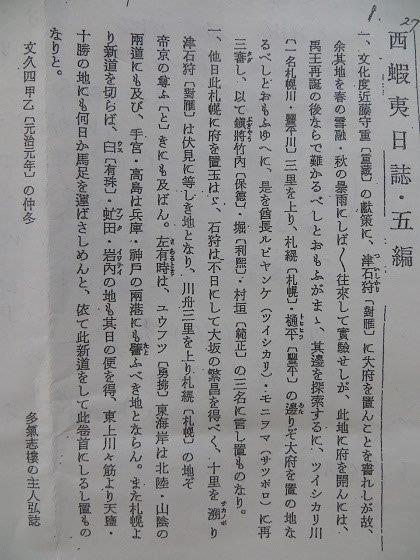 27
西蝦夷日誌・五編
一、文化度近藤守重〔重藏〕の獻策に、津石狩〔對雁〕に大府を置んことを書れしが故、
余其地を春の雪融・秋の暴雨にしば〳〵往來して實驗せしが、此地に府を開んには、
禹王再誕の後ならで難かるべしとおもふがまゝ、其邊を探索するに、ツイシカリ川
〔一名札幌川・豐平川〕三里を上り、札縨〔札幌〕・樋平〔豐平〕の邊りぞ大府を置の地な
るべしとおもふゆへに、是を酋長ルピヤンケ(ツイシカリ)・モニヲマ(サツポロ)に再
三審し、以て鎭將竹内〔保德〕・堀〔利熙〕・村垣〔範正〕の三名に言し置ものなり。
一、他日此札幌に府を置玉はゞ、石狩は不日にして大坂の繁昌を得べく、十里を溯り
津石狩〔對雁〕は伏見に等しき地となり、川舟三里を上り札縨〔札幌〕の地ぞ
帝京の尊ふ〔と〕きにも及ばん。左有時は、ユウフツ〔勇拂〕東海岸は北陸・山陰の
兩道にも及び、手宮・高島は兵庫・神戸の兩港にも譬ふべき地とならん。また札幌よ
り新道を切らば、臼〔有珠〕・虻田・岩内の地も其日の便を得、東上川々筋より天鹽・
十勝の地にも何日か馬足を運ばさしめんと、依て此新道をして此卷首にしるし置もの
なりと。
文久四甲乙〔元治元年〕の仲冬
多氣志樓の主人弘誌